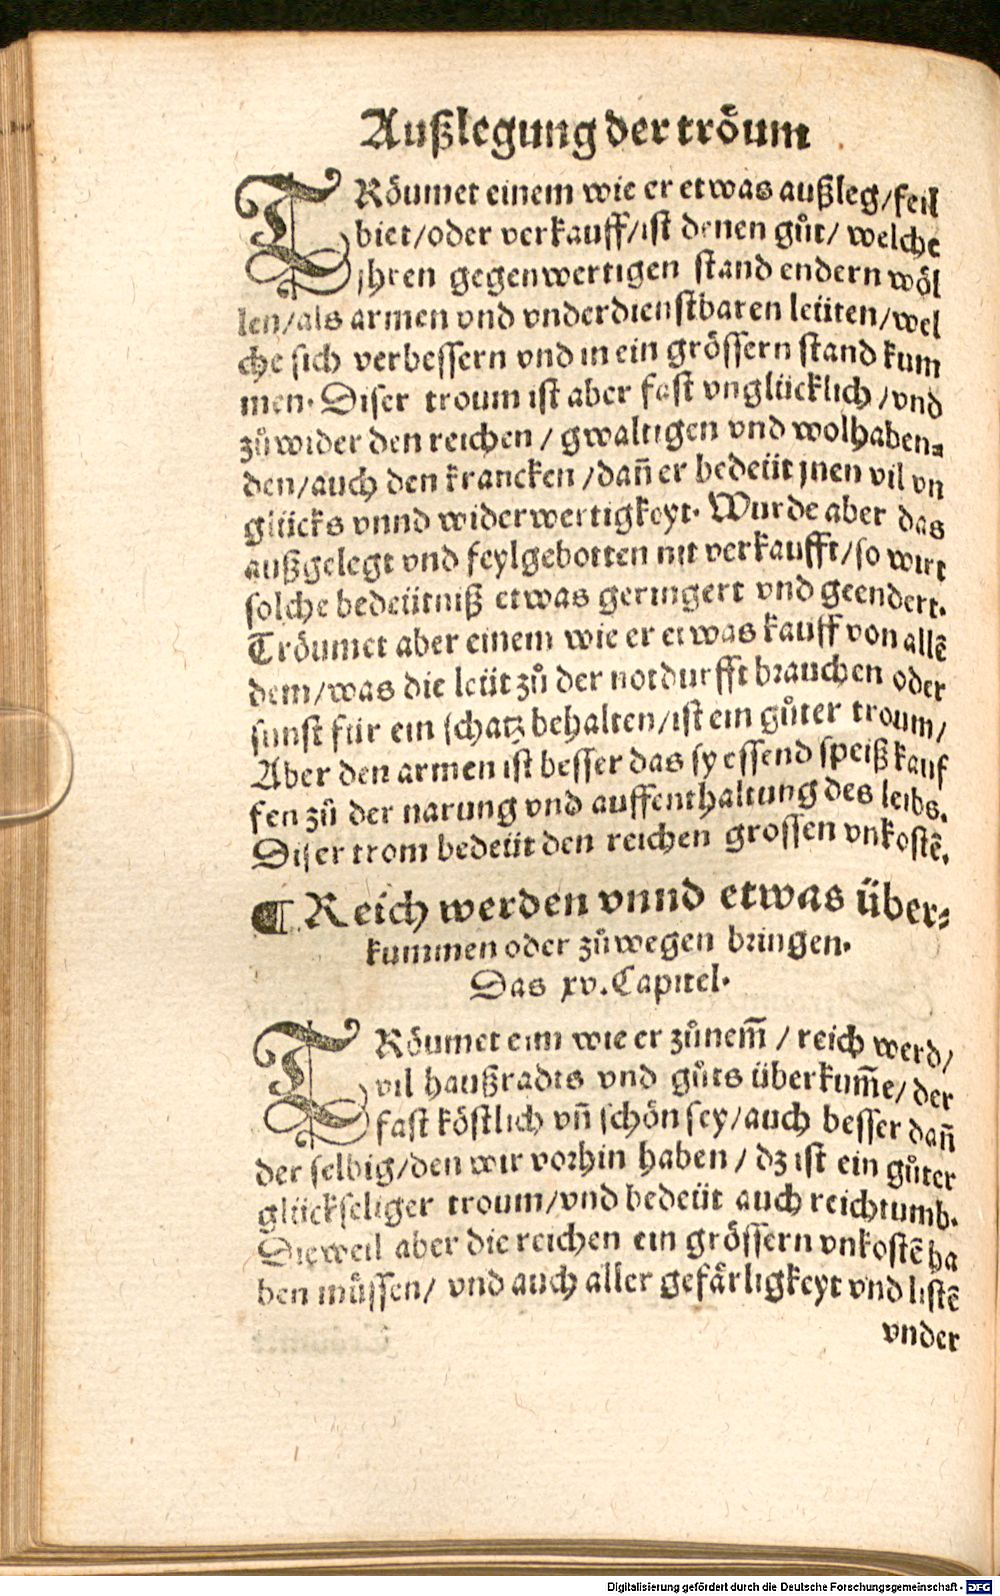 Außlegung der tröum
TRöumet einem wie er etwas außleg/feil
biet/oder verkauff/ist denen gůt/ welche
jhren gegenwertigen stand endern wöl
len/als armen vnd vnderdienstbaren leüten/wel
che sich verbessern vnd in ein grössern stand kum
men. Diser troum ist aber fast vnglücklich/vnd
zůwider den reichen / gwaltigen vnd wolhaben⸗
den/auch den krancken /dañ er bedeüt jnen vil vn
glücks vnnd widerwertigkeyt. Wurde aber das
außgelegt vnd feylgebotten nit verkaufft/so wirt
solche bedeütniß etwas geringert vnd geendert.
Tröumet aber einem wie er etwas kauff von allē
dem/was die leüt zů der notdurfft brauchen oder
sunst für ein schatz behalten/ist ein gůter troum/
Aber den armen ist besser das sy essend speiß kauf
fen zů der narung vnd auffenthaltung des leibs.
Diser trom bedeüt den reichen grossen vnkostē.
¶ Reich werden vnnd etwas über⸗
kummen oder zůwegen bringen.
Das xv. Capitel.
TRöumet eim wie er zůnem̄ / reich werd/
vil haußradts vnd gůts überkum̄e/ der
fast köstlich vñ schön sey/auch besser dañ
der selbig/den wir vorhin haben / dz ist ein gůter
glückseliger troum/vnd bedeüt auch reichtumb.
Dieweil aber die reichen ein grössern vnkostē ha
ben müssen/ vnd auch aller gefärligkeyt vnd listē
vnder
Digitalisierung gefördert durch die Deutsche Forschungsgemeinschaft - DFG